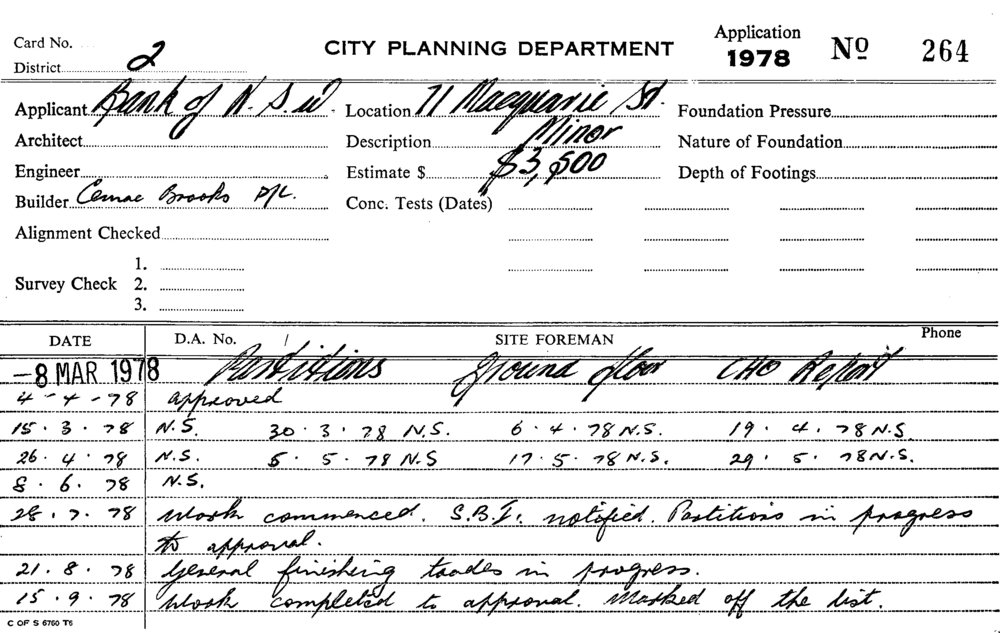 Card No.
CITY PLANNING DEPARTMENT
Application 1978 No 264
District 2
Applicant Bank of N.S.W. Location 71 Macquarie St. Foundation Pressure
Architect Description Minor Nature of Foundation
Engineer Estimate $ $3,500 Depth of Footings
Builder Cemac Brooks P/L. Conc. Tests (Dates)
Alignment Checked
1.
Survey Check 2.
3.
DATE D.A. No. / SITE FOREMAN Phone
-8 MAR 1978 Partitions Ground floor CHO Report
4-4-78 approved
15.3.78 N.S. 30.3.78 N.S. 6.4.78 N.S. 19.4.78 N.S.
26.4.78 N.S. 5.5.78 N.S 17.5.78 N.S. 29.5.78 N.S.
8.6.78 N.S.
28.7.78 Work commenced. S.B.I. notified. Partitions in progress
to approval.
21.8.78 General finishing trades in progress.
15.9.78 Work completed to approval. Marked off the list.
C OF S 6760 T6